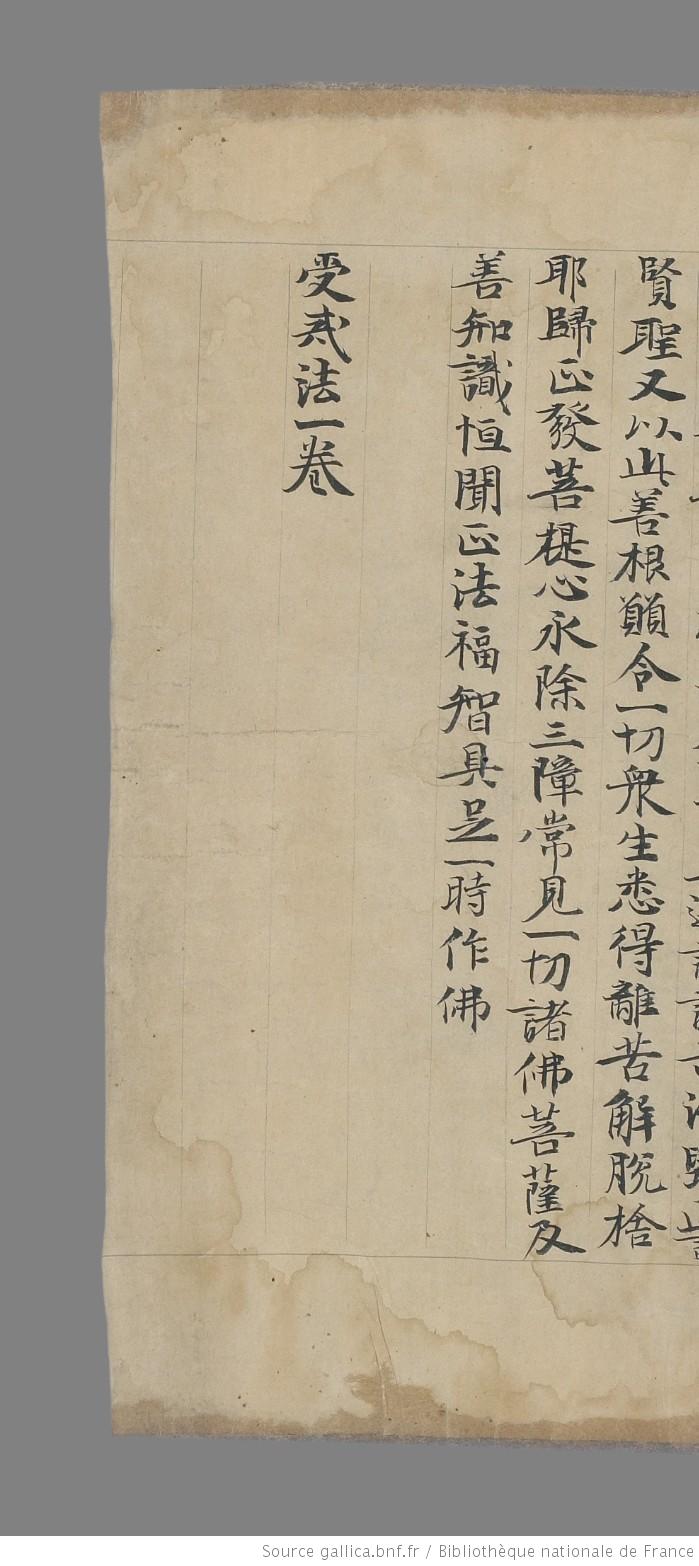 賢聖又以此善根願令一切衆生悉得離苦解脫捨
耶歸正發菩提心永除三障常見一切諸佛菩薩及
善知識恒聞正法福智具足一時作佛
受戒法一卷
Source gallica.bnf.fr / Bibliothèque nationale de France